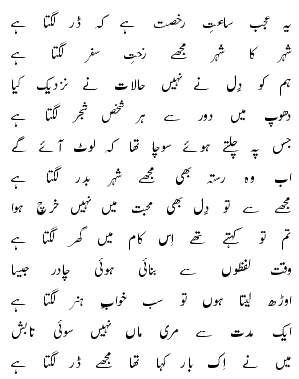 یہ عجب ساعتِ رخصت ہے کہ ڈر لگتا ہے
شہر کا شہر مجھے رختِ سفر لگتا ہے
ہم کو دِل نے نہیں حالات نے نزدیک کیا
دھوپ میں دور سے ہر شخص شجر لگتا ہے
جس پہ چلتے ہوئے سوچا تھا کہ لوٹ آئے گے
اب وہ رستہ بھی مجھے شہر بدر لگتا ہے
مجھ سے تو دِل بھی محبت میں نہیں خرچ ہوا
تم تو کہتے تھے اِس کام میں گھر لگتا ہے
وقت لفظوں سے بنائی ہوئی چادر جیسا
اوڑھ لیتا ہوں تو سب خوابِ ہنر لگتا ہے
ایک مدت سے مری ماں نہیں سوئی تابش
میں نے اِک بار کہا تھا مجھے ڈر لگتا ہے